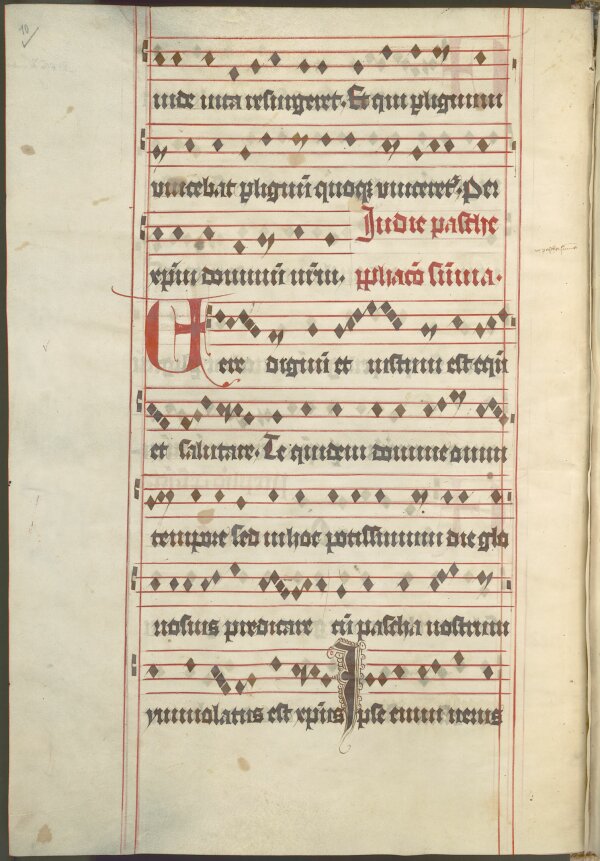 10
inde vita resurgeret. Et qui p lignum
vincebat p lignũ quoqꝫ vinceret. Per
In die pasche
xp̃m dominũ nr̃m. pphacõ sũma.
Vere dignũ et iustum est equũ
et salutare. Te quidem domine omni
tempore sed in hoc potissimum die glo
riosius predicare cũ pascha nostrum
ymmolatus est xp̃us Ipse enim verus